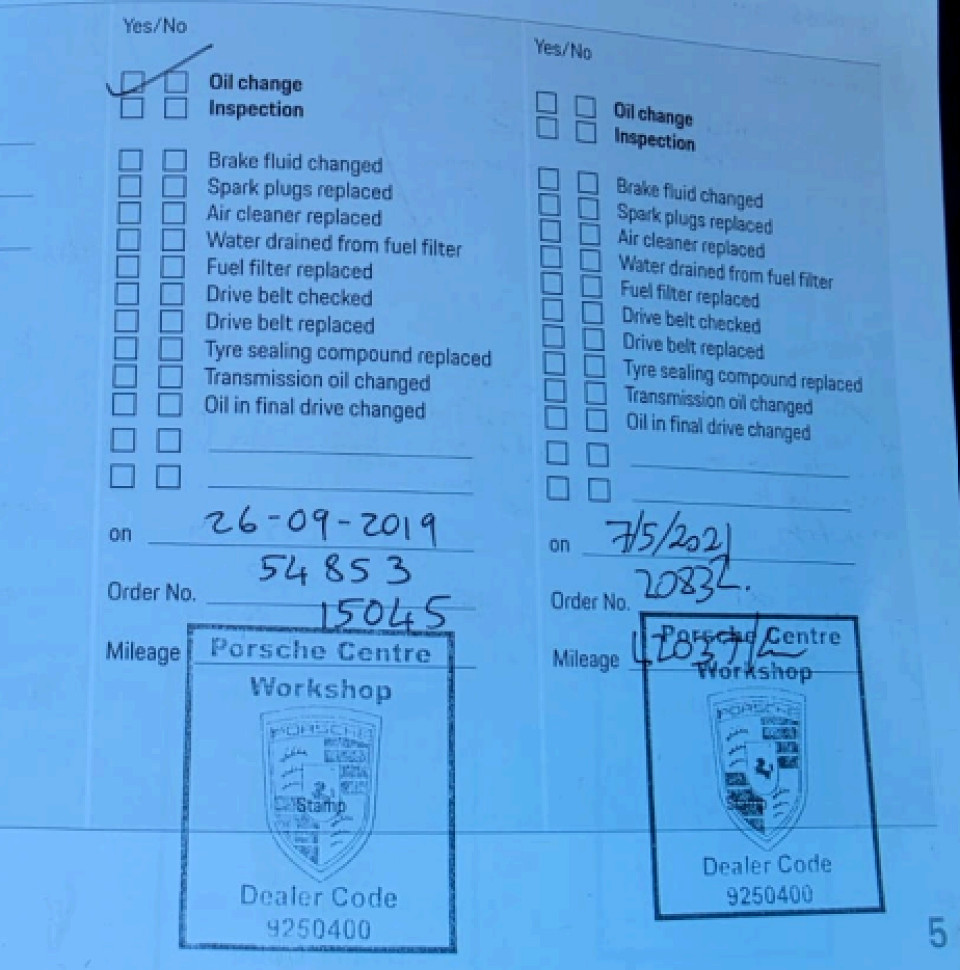 Yes/No
Oil change
Inspection
Brake fluid changed
Spark plugs replaced
Air cleaner replaced
Water drained from fuel filter
Fuel filter replaced
Drive belt checked
Drive belt replaced
Tyre sealing compound replaced
Transmission oil changed
Oil in final drive changed
on 26-09-2019
Order No. 54853
Mileage 15045
Porsche Centre
Workshop
PORSCHE
Stamp
Dealer Code
9250400
Yes/No
Oil change
Inspection
Brake fluid changed
Spark plugs replaced
Air cleaner replaced
Water drained from fuel filter
Fuel filter replaced
Drive belt checked
Drive belt replaced
Tyre sealing compound replaced
Transmission oil changed
Oil in final drive changed
on 7/5/2021
Order No.
Mileage
Porsche Centre
Workshop
PORSCHE
Stamp
Dealer Code
9250400
5